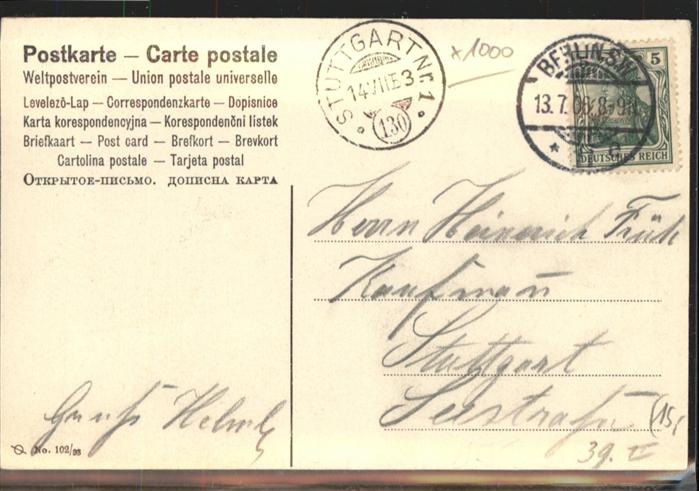 Postkarte — Carte postale
Weltpostverein — Union postale universelle
Levelező-Lap — Correspondenzkarte — Dopisnice
Karta korespondencyjna — Korespondenční lístek
Briefkaart — Post card — Brefkort — Brevkort
Cartolina postale — Tarjeta postal
Открытое-письмо. дописна карта
STUTTGART Nr. 1
14 VII E 3
130
x1000
BERLIN S.W.
13.7.06.8-9
5
DEUTSCHES REICH
Herrn Heinrich Früh
Kaufmann
Stuttgart
Seestraße
39. II
Gruß Helmut
No. 102/